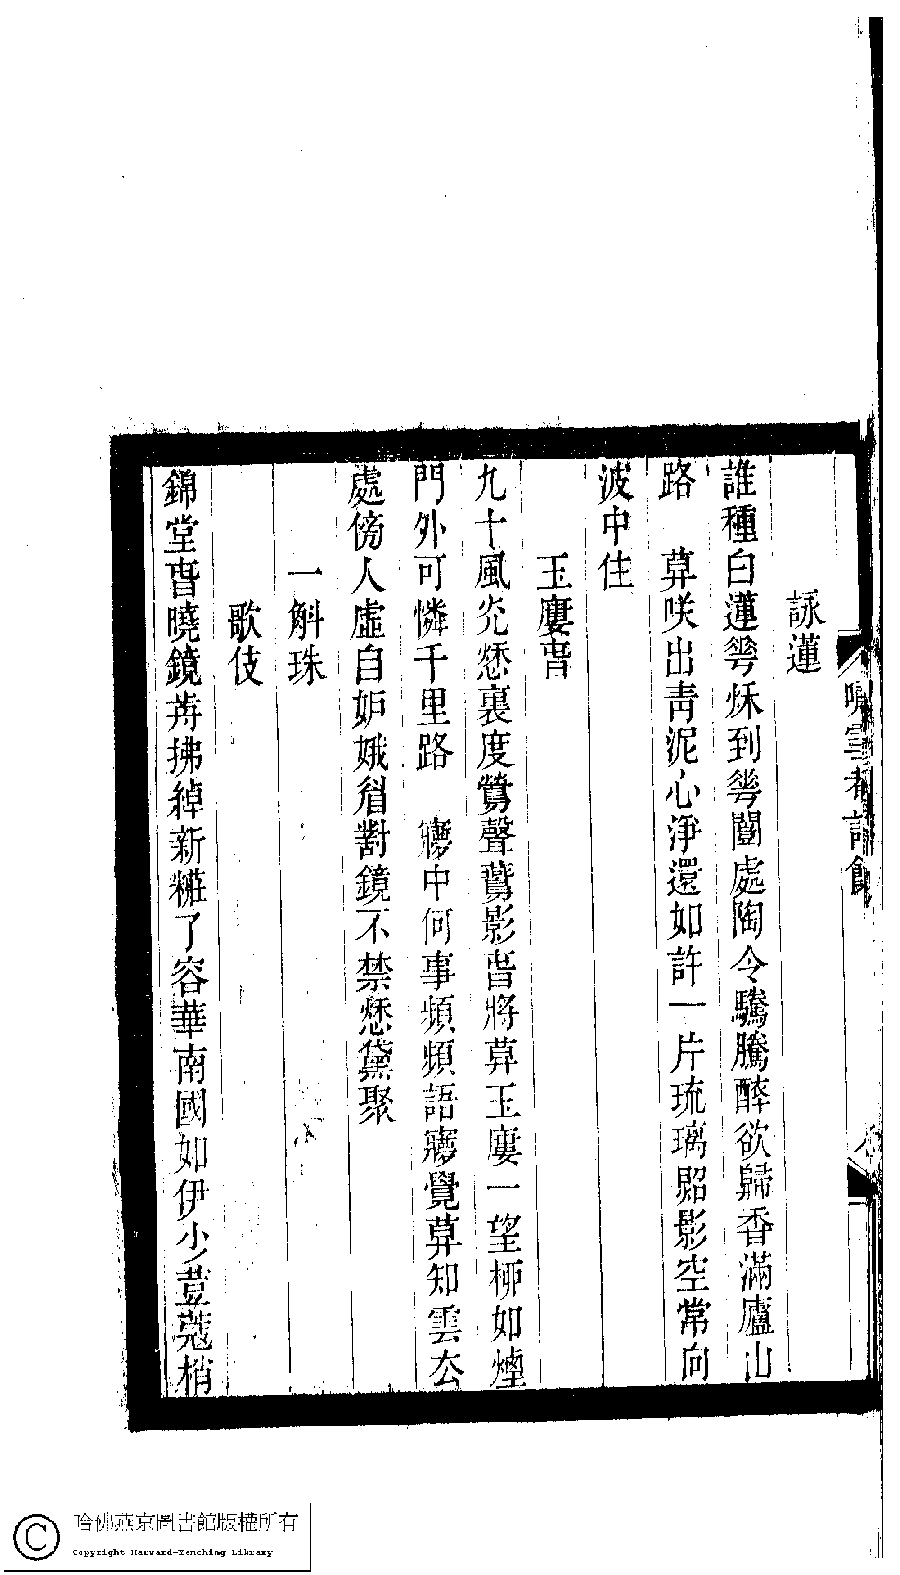 詠蓮
誰種白蓮蕚秌到蕚開處陶令騎騰醉欲歸香滿廬山
路　莫咲出靑泥心淨還如許一片琉璃照影空常向
波中住
玉廔旾
九十風光愁裏度鶯聲鷰影旾將莫玉廔一望桺如煙
門外可憐千里路　㝱中何事頻頻語㝱覺莫知雲厺
處傍人虛自妒娥眉對鏡不禁愁黛聚
一斛珠
歌伎
錦堂旾曉鏡再拂綽新糚了容華南國如伊少荳蔻梢
哈佛燕京圖書館版權所有
Copyright Harvard-Yenching Library